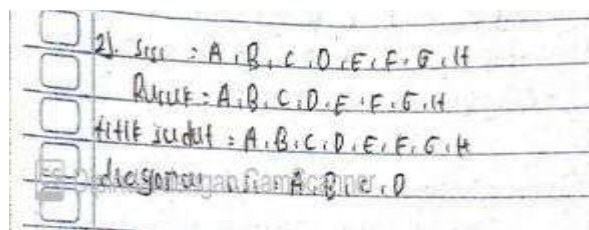 2). Sisi : A, B, C, D, E, F, G, H
Rusuk : A, B, C, D, E, F, G, H
titik sudut : A, B, C, D, E, F, G, H
diagonal : A, B, C, D
CamScanner